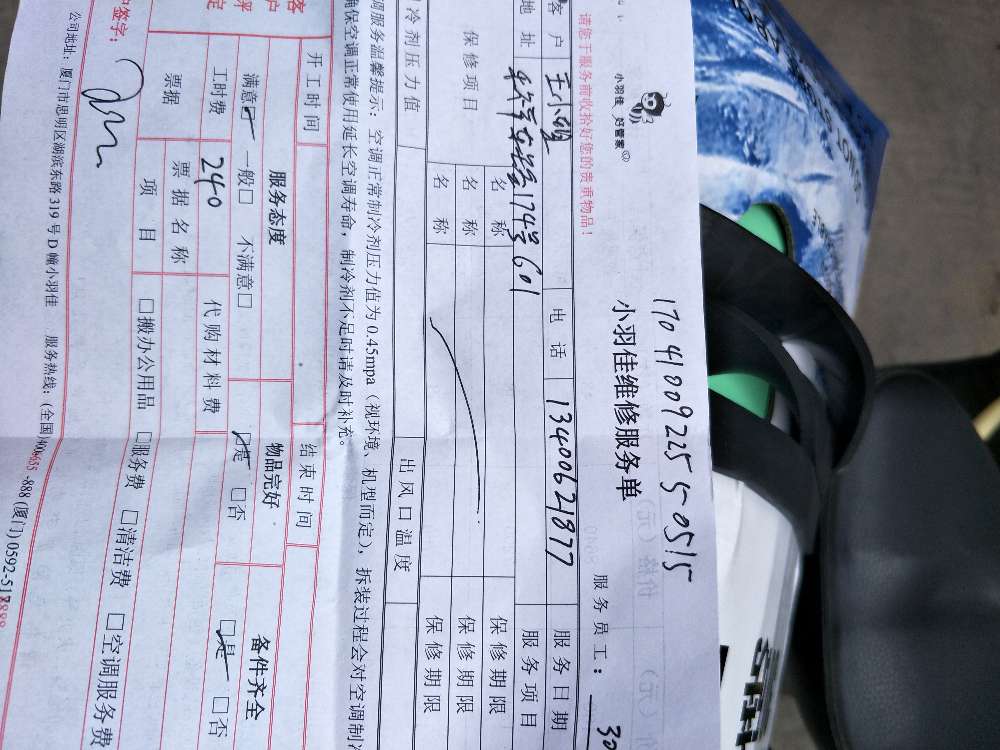 170410092255-0515
小羽佳 好管家
小羽佳维修服务单
服务员工：30
请您于服务前收拾好您的贵重物品！
客户 王小 电话 13400621877 服务日期
地址 174号601 服务项目
保修项目 名称 保修期限
名称 保修期限
名称 保修期限
冷剂压力值 出风口温度
调服务温馨提示：空调正常制冷剂压力值为0.45mpa（视环境、机型而定），拆装过程会对空调制冷
确保空调正常使用延长空调寿命，制冷剂不足时请及时补充。
开工时间 结束时间
服务态度 物品完好 备件齐全
满意☑ 一般□ 不满意□ ☑是 □否 ☑是 □否
工时费 240 代购材料费
票据 票据名称
项目 □搬办公用品 □服务费 □清洁费 □空调服务费
签字：
公司地址：厦门市思明区湖滨东路319号D幢小羽佳 服务热线：(全国)400-655-888 (厦门) 0592-518888